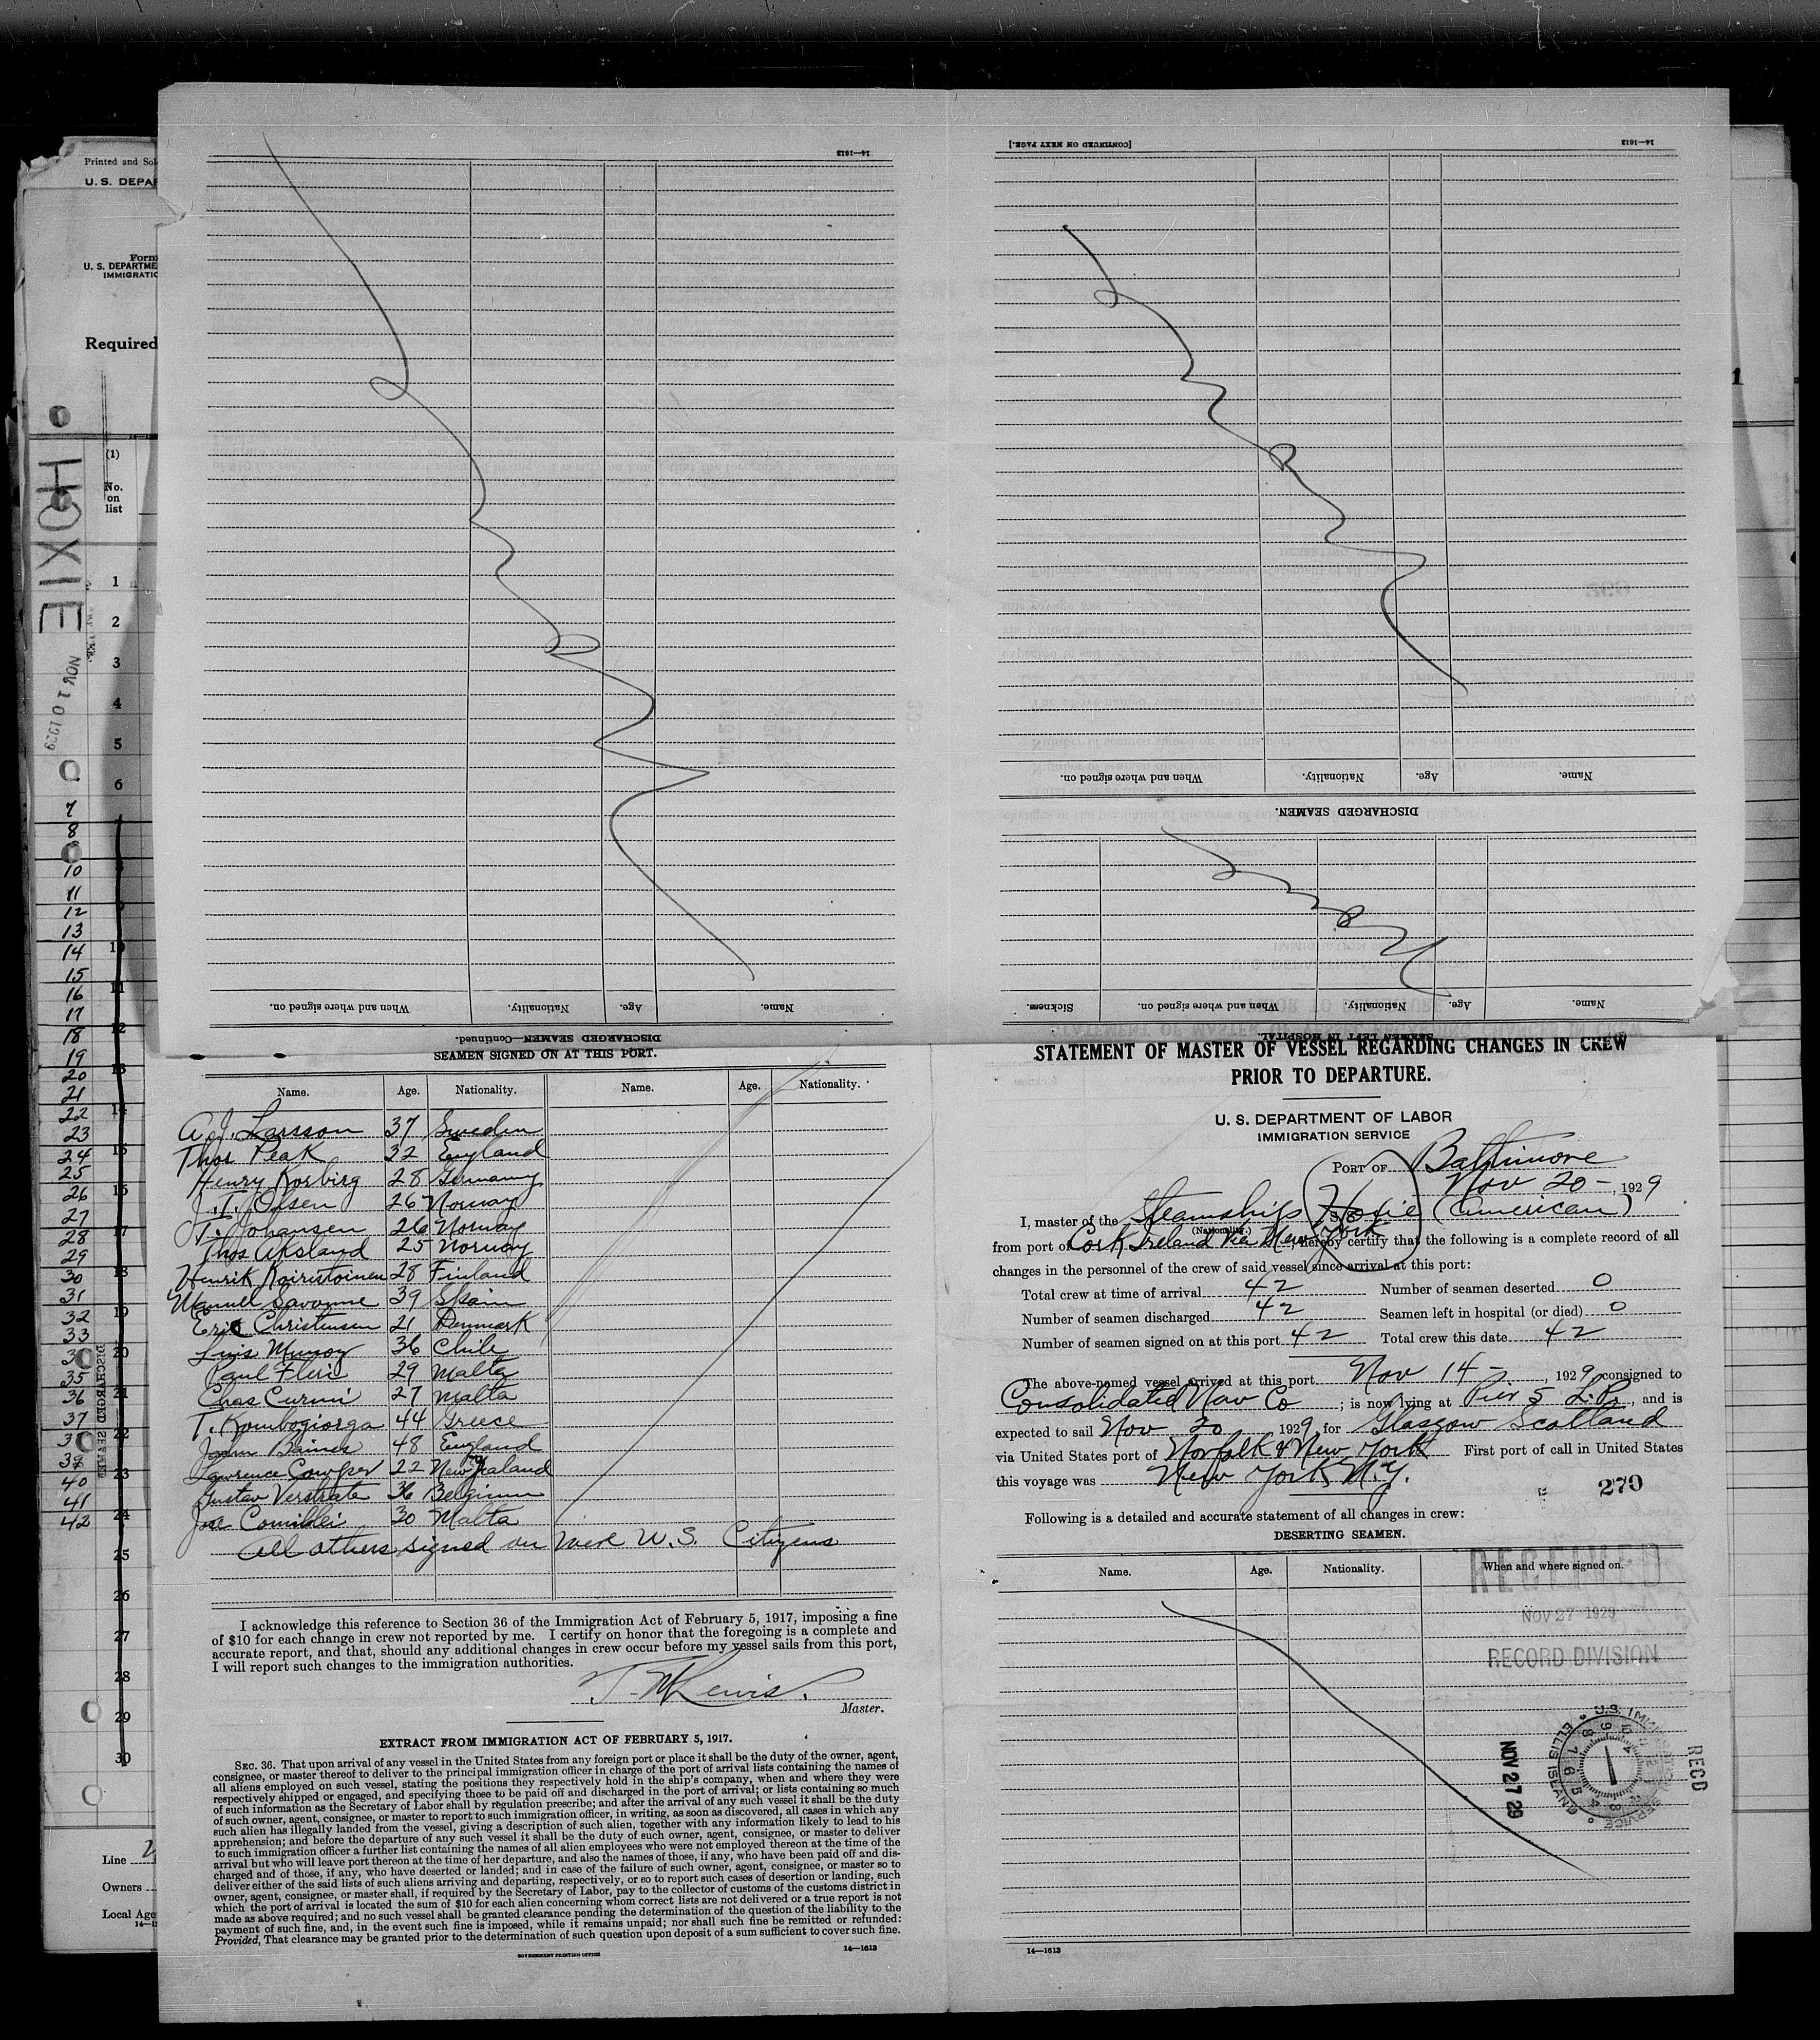 Printed and Sol
U. S. DEPAR
Form
U. S. DEPARTME
IMMIGRATIO
Required
(1)
No.
on
list
HOXIE
NOV 10 1929
1
2
3
4
5
6
7
8
10
11
12
13
14
15
16
17
18
19
20
21
22
23
24
25
26
27
28
29
30
31
32
33
35
36
37
40
41
42
DISCHARGED SEAMEN
25
26
27
28
29
30
Line
Owners
Local Age
14—1613
[CONTINUED ON NEXT PAGE.]
14—1613
Name. Age. Nationality. When and where signed on.
DISCHARGED SEAMEN—Continued.
Name. Age. Nationality. When and where signed on.
DISCHARGED SEAMEN.
Name. Age. Nationality. When and where signed on. Sickness.
SEAMEN LEFT IN HOSPITAL.
SEAMEN SIGNED ON AT THIS PORT.
Name. Age. Nationality. Name. Age. Nationality.
A. J. Larsson 37 Sweden
Thos Peak 32 England
Henry Rosbirg 28 Germany
J. T. Olsen 26 Norway
T. Johansen 26 Norway
Thos Aksland 25 Norway
Henrik Kairistoinen 28 Finland
Manuel Savonne 39 Spain
Eric Christensen 21 Denmark
Luis Munoy 36 Chile
Paul Fleri 29 Malta
Chas Curmi 27 Malta
T. Kombogiorga 44 Greece
John Baines 48 England
Lawrence Cowper 22 New Zealand
Gustav Verstrate 36 Belgium
Joe Comilleri 30 Malta
All others signed on were U.S. Citizens
I acknowledge this reference to Section 36 of the Immigration Act of February 5, 1917, imposing a fine
of $10 for each change in crew not reported by me. I certify on honor that the foregoing is a complete and
accurate report, and that, should any additional changes in crew occur before my vessel sails from this port,
I will report such changes to the immigration authorities.
T. M. Lewis.
Master.
EXTRACT FROM IMMIGRATION ACT OF FEBRUARY 5, 1917.
SEC. 36. That upon arrival of any vessel in the United States from any foreign port or place it shall be the duty of the owner, agent,
consignee, or master thereof to deliver to the principal immigration officer in charge of the port of arrival lists containing the names of
all aliens employed on such vessel, stating the positions they respectively hold in the ship's company, when and where they were
respectively shipped or engaged, and specifying those to be paid off and discharged in the port of arrival; or lists containing so much
of such information as the Secretary of Labor shall by regulation prescribe; and after the arrival of any such vessel it shall be the duty
of such owner, agent, consignee, or master to report to such immigration officer, in writing, as soon as discovered, all cases in which any
such alien has illegally landed from the vessel, giving a description of such alien, together with any information likely to lead to his
apprehension; and before the departure of any such vessel it shall be the duty of such owner, agent, consignee, or master to deliver
to such immigration officer a further list containing the names of all alien employees who were not employed thereon at the time of the
arrival but who will leave port thereon at the time of her departure, and also the names of those, if any, who have been paid off and dis-
charged and of those, if any, who have deserted or landed; and in case of the failure of such owner, agent, consignee, or master so to
deliver either of the said lists of such aliens arriving and departing, respectively, or so to report such cases of desertion or landing, such
owner, agent, consignee, or master shall, if required by the Secretary of Labor, pay to the collector of customs of the customs district in
which the port of arrival is located the sum of $10 for each alien concerning whom correct lists are not delivered or a true report is not
made as above required; and no such vessel shall be granted clearance pending the determination of the question of the liability to the
payment of such fine, and, in the event such fine is imposed, while it remains unpaid; nor shall such fine be remitted or refunded:
Provided, That clearance may be granted prior to the determination of such question upon deposit of a sum sufficient to cover such fine.
GOVERNMENT PRINTING OFFICE
14—1613
STATEMENT OF MASTER OF VESSEL REGARDING CHANGES IN CREW
PRIOR TO DEPARTURE.
U. S. DEPARTMENT OF LABOR
IMMIGRATION SERVICE
PORT OF Baltimore
Nov 20-, 1929
I, master of the Steamship Hoxie (American)
(Nationality.)
from port of Cork Ireland via New York, hereby certify that the following is a complete record of all
changes in the personnel of the crew of said vessel since arrival at this port:
Total crew at time of arrival 42 Number of seamen deserted 0
Number of seamen discharged 42 Seamen left in hospital (or died) 0
Number of seamen signed on at this port 42 Total crew this date 42
The above-named vessel arrived at this port Nov 14-, 1929, consigned to
Consolidated Nav Co; is now lying at Pier 5 L.P., and is
expected to sail Nov 20 1929, for Glasgow Scotland
via United States port of Norfolk & New York First port of call in United States
this voyage was New York N.Y.
270
Following is a detailed and accurate statement of all changes in crew:
DESERTING SEAMEN.
Name. Age. Nationality. When and where signed on.
RECEIVED
NOV 27 1929
RECORD DIVISION
U.S. IMMIGRATION SERVICE ELLIS ISLAND
NOV 27 29
RECD
14—1613